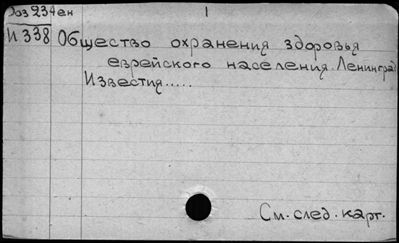 Роз 234ен 1
И 338 Общество охранения здоровья
еврейского населения. Ленинград
Известия.....
См. след. карт.